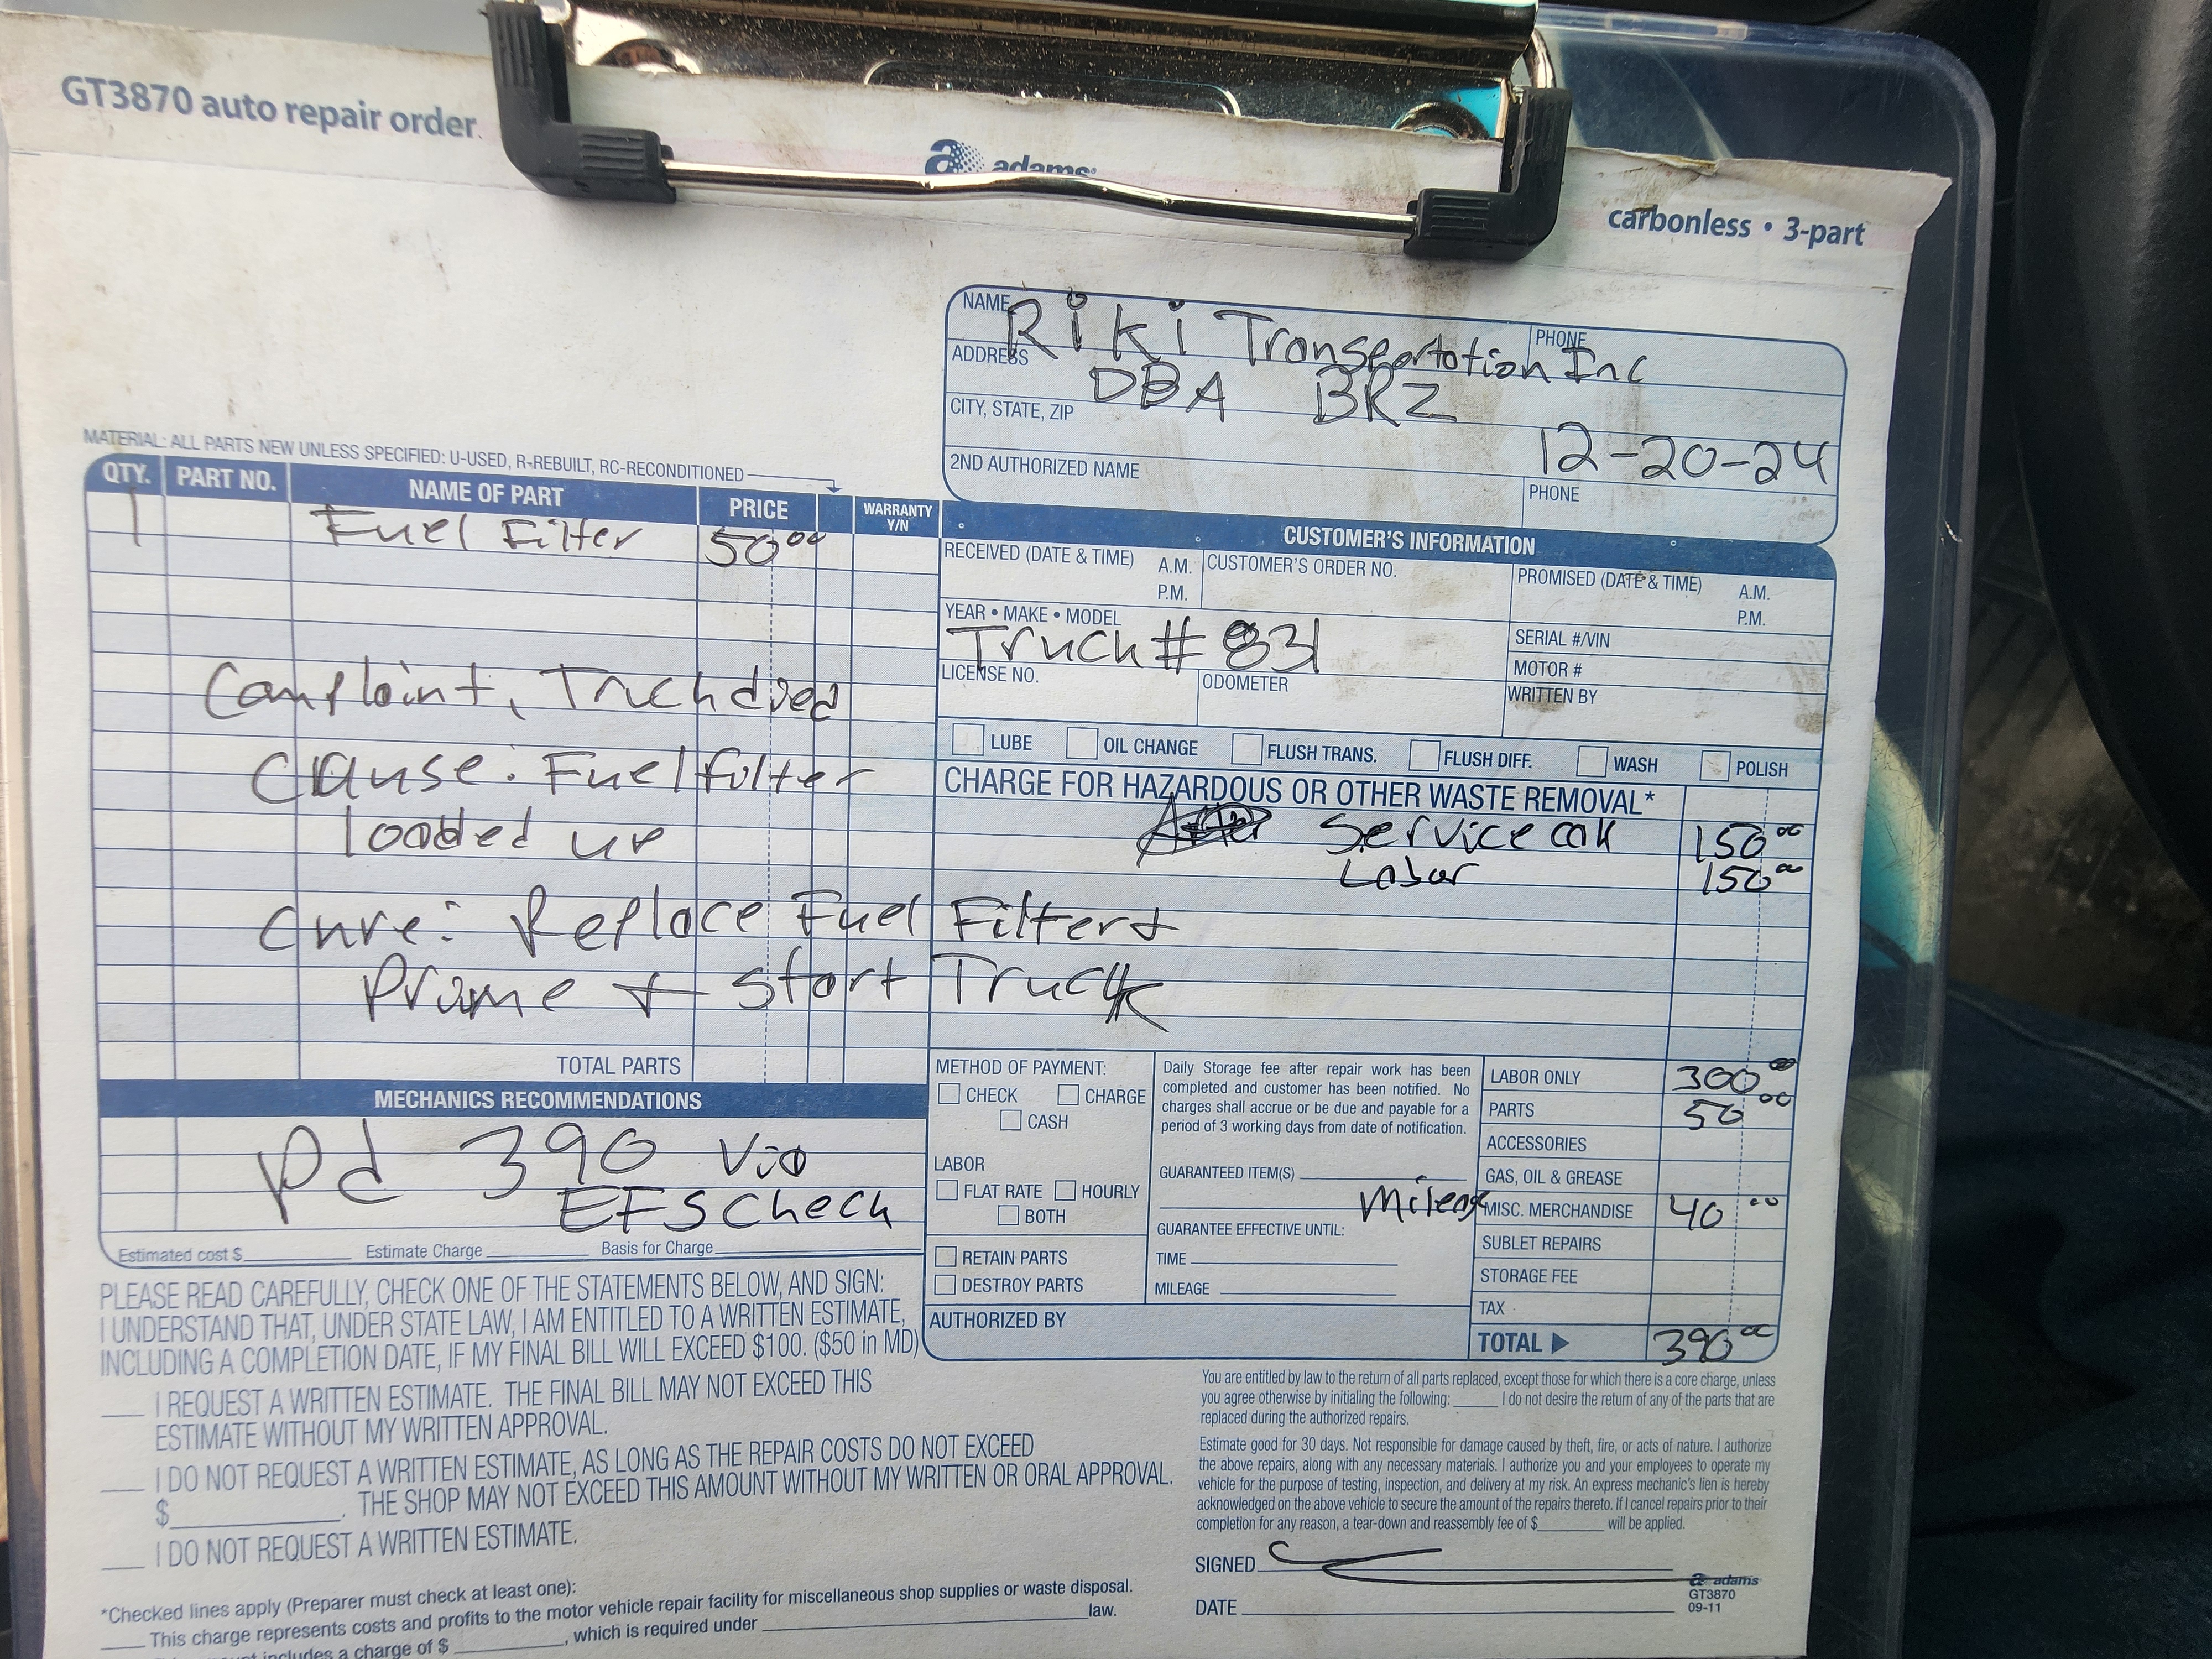 GT3870 auto repair order
adams
carbonless • 3-part
NAME Riki Transportation Inc
PHONE
ADDRESS DBA BRZ
CITY, STATE, ZIP
12-20-24
2ND AUTHORIZED NAME
PHONE
MATERIAL: ALL PARTS NEW UNLESS SPECIFIED: U-USED, R-REBUILT, RC-RECONDITIONED
QTY. PART NO. NAME OF PART PRICE WARRANTY Y/N
1 Fuel Filter 50 00
Complaint, Truck died
Cause: Fuel filter
loaded up
Cure: Replace Fuel Filter +
Prime + start Truck
TOTAL PARTS
MECHANICS RECOMMENDATIONS
Pd 390 via
EFS Check
Estimated cost $ Estimate Charge Basis for Charge
CUSTOMER'S INFORMATION
RECEIVED (DATE & TIME) A.M. P.M.
CUSTOMER'S ORDER NO.
PROMISED (DATE & TIME) A.M. P.M.
YEAR • MAKE • MODEL
Truck # 831
SERIAL #/VIN
MOTOR #
LICENSE NO.
ODOMETER
WRITTEN BY
LUBE OIL CHANGE FLUSH TRANS. FLUSH DIFF. WASH POLISH
CHARGE FOR HAZARDOUS OR OTHER WASTE REMOVAL*
Service call 150 00
Labor 150 00
METHOD OF PAYMENT:
CHECK CHARGE
CASH
LABOR
FLAT RATE HOURLY
BOTH
RETAIN PARTS
DESTROY PARTS
AUTHORIZED BY
Daily Storage fee after repair work has been
completed and customer has been notified. No
charges shall accrue or be due and payable for a
period of 3 working days from date of notification.
GUARANTEED ITEM(S)
GUARANTEE EFFECTIVE UNTIL:
TIME
MILEAGE
LABOR ONLY 300 00
PARTS 50 00
ACCESSORIES
GAS, OIL & GREASE
Mileage MISC. MERCHANDISE 40 00
SUBLET REPAIRS
STORAGE FEE
TAX
TOTAL 390 00
PLEASE READ CAREFULLY, CHECK ONE OF THE STATEMENTS BELOW, AND SIGN:
I UNDERSTAND THAT, UNDER STATE LAW, I AM ENTITLED TO A WRITTEN ESTIMATE,
INCLUDING A COMPLETION DATE, IF MY FINAL BILL WILL EXCEED $100. ($50 in MD)
I REQUEST A WRITTEN ESTIMATE. THE FINAL BILL MAY NOT EXCEED THIS
ESTIMATE WITHOUT MY WRITTEN APPROVAL.
I DO NOT REQUEST A WRITTEN ESTIMATE, AS LONG AS THE REPAIR COSTS DO NOT EXCEED
$ . THE SHOP MAY NOT EXCEED THIS AMOUNT WITHOUT MY WRITTEN OR ORAL APPROVAL.
I DO NOT REQUEST A WRITTEN ESTIMATE.
*Checked lines apply (Preparer must check at least one):
This charge represents costs and profits to the motor vehicle repair facility for miscellaneous shop supplies or waste disposal.
includes a charge of $ , which is required under law.
You are entitled by law to the return of all parts replaced, except those for which there is a core charge, unless
you agree otherwise by initialing the following: I do not desire the return of any of the parts that are
replaced during the authorized repairs.
Estimate good for 30 days. Not responsible for damage caused by theft, fire, or acts of nature. I authorize
the above repairs, along with any necessary materials. I authorize you and your employees to operate my
vehicle for the purpose of testing, inspection, and delivery at my risk. An express mechanic's lien is hereby
acknowledged on the above vehicle to secure the amount of the repairs thereto. If I cancel repairs prior to their
completion for any reason, a tear-down and reassembly fee of $ will be applied.
SIGNED
DATE
adams
GT3870
09-11